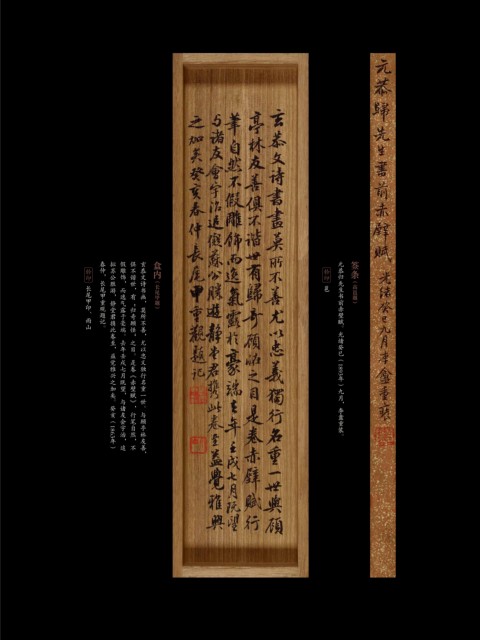 元恭歸先生書前赤壁賦
光緒癸巳九月李盦重裝
簽條
元恭归先生书前赤壁赋。光绪癸巳（1893年）九月，李盦重装。
钤印 邕
玄恭文诗書畫莫所不善尤以忠義獨行名重一世與顧
亭林友善俱不諧世有歸奇顧怪之目是卷赤壁賦行
筆自然不假雕飾而逸氣露於豪端去年壬戌七月既望
与諸友會宇治追擬蘇公勝遊静堂君携此卷至益覺雅興
之加矣癸亥春仲長尾甲重觀題記
盒內
玄恭文诗书画，莫所不善，尤以忠义独行名重一世，与顾亭林友善，
俱不谐世，有“归奇顾怪”之目。是卷《赤壁赋》，行笔自然，不
假雕饰，而逸气露于豪端。去年壬戌七月既望，与诸友会宇治，追
拟苏公胜游，静堂君携此卷至，益觉雅兴之加矣。癸亥（1923年）
春仲，长尾甲重观题记。
钤印 长尾甲印、雨山